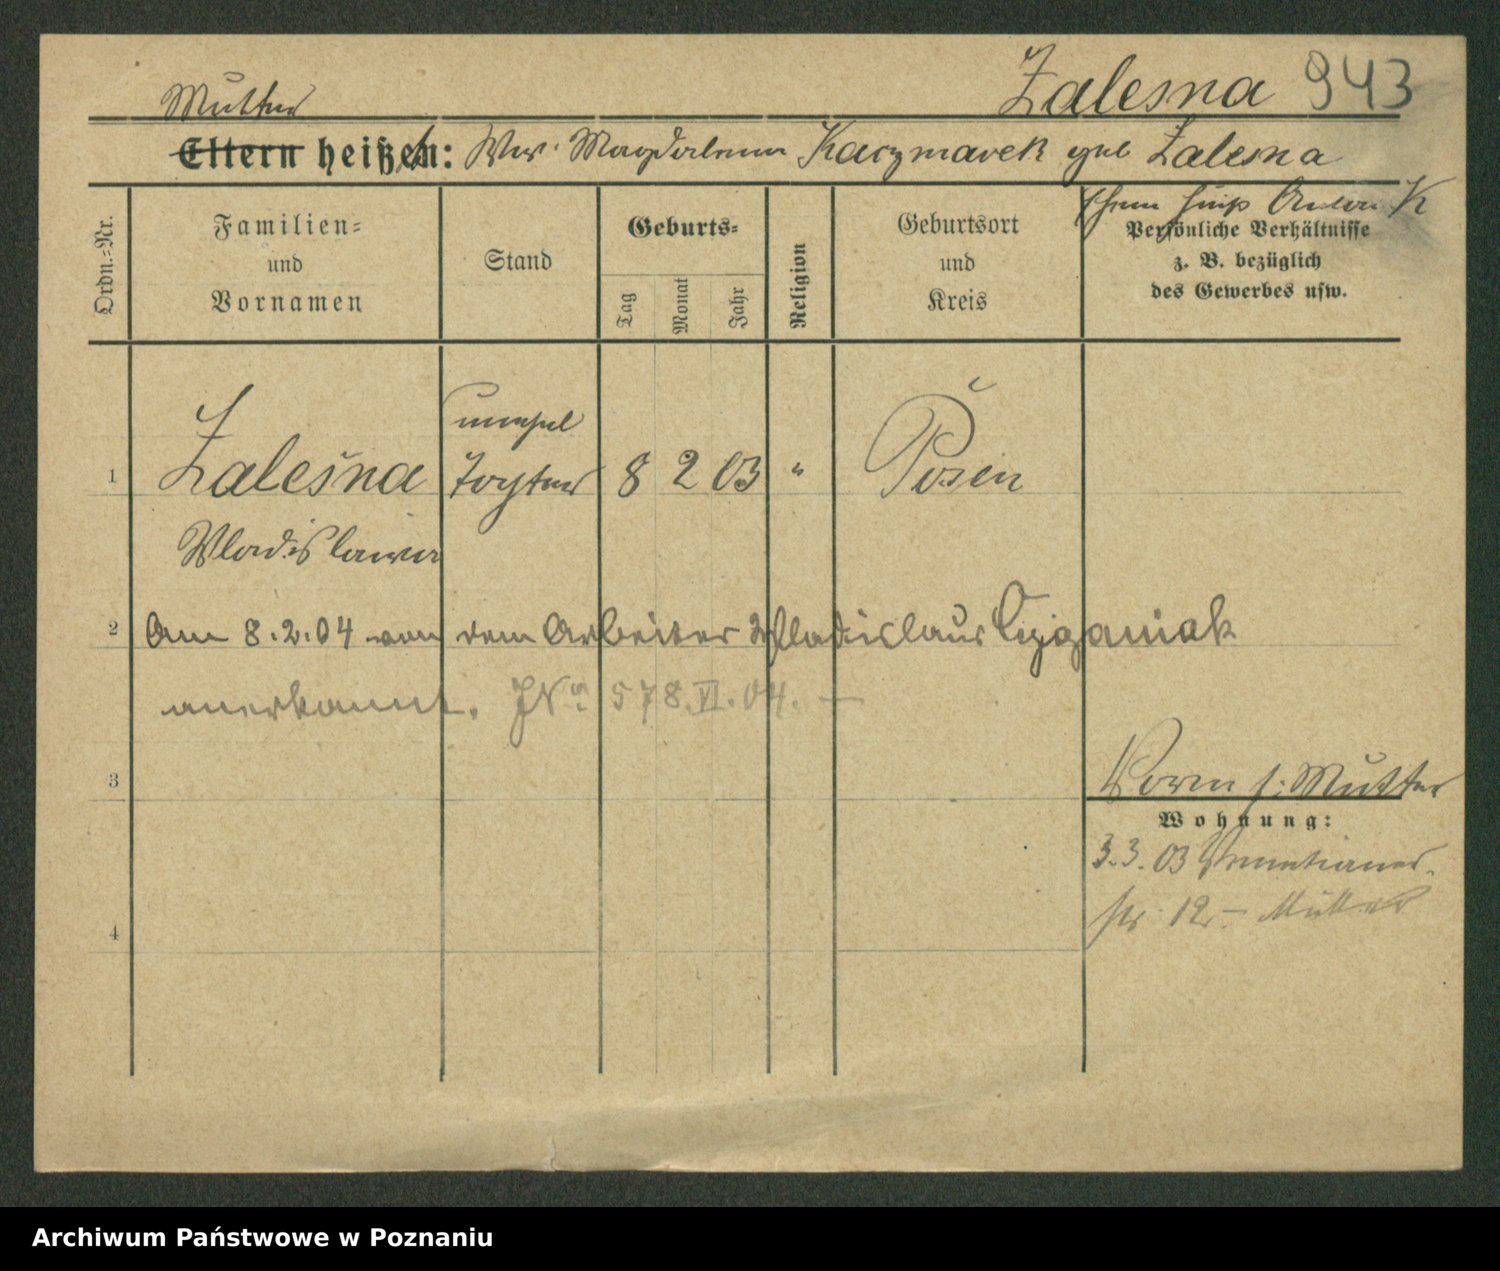 Zalesna 943
Mutter
Eltern heißt: Ww. Magdalena Kaczmarek geb Zalesna
Ehem hieß Anton K
Ordn.-Nr.
Familien-
und
Vornamen
Stand
Geburts-
Tag
Monat
Jahr
Religion
Geburtsort
und
Kreis
Persönliche Verhältnisse
z. B. bezüglich
des Gewerbes usw.
unehel
1 Zalesna Tochter 8 2 03 " Posen
Wladislawa
2 Am 8.2.04 von dem Arbeiter Wladislaus Cyganiak
anerkannt. JNo. 578.VI.04. —
3
Vorm s: Mutter
Wohnung:
3.3.03 Venetianer-
str 12 – Mutter
4
Archiwum Państwowe w Poznaniu